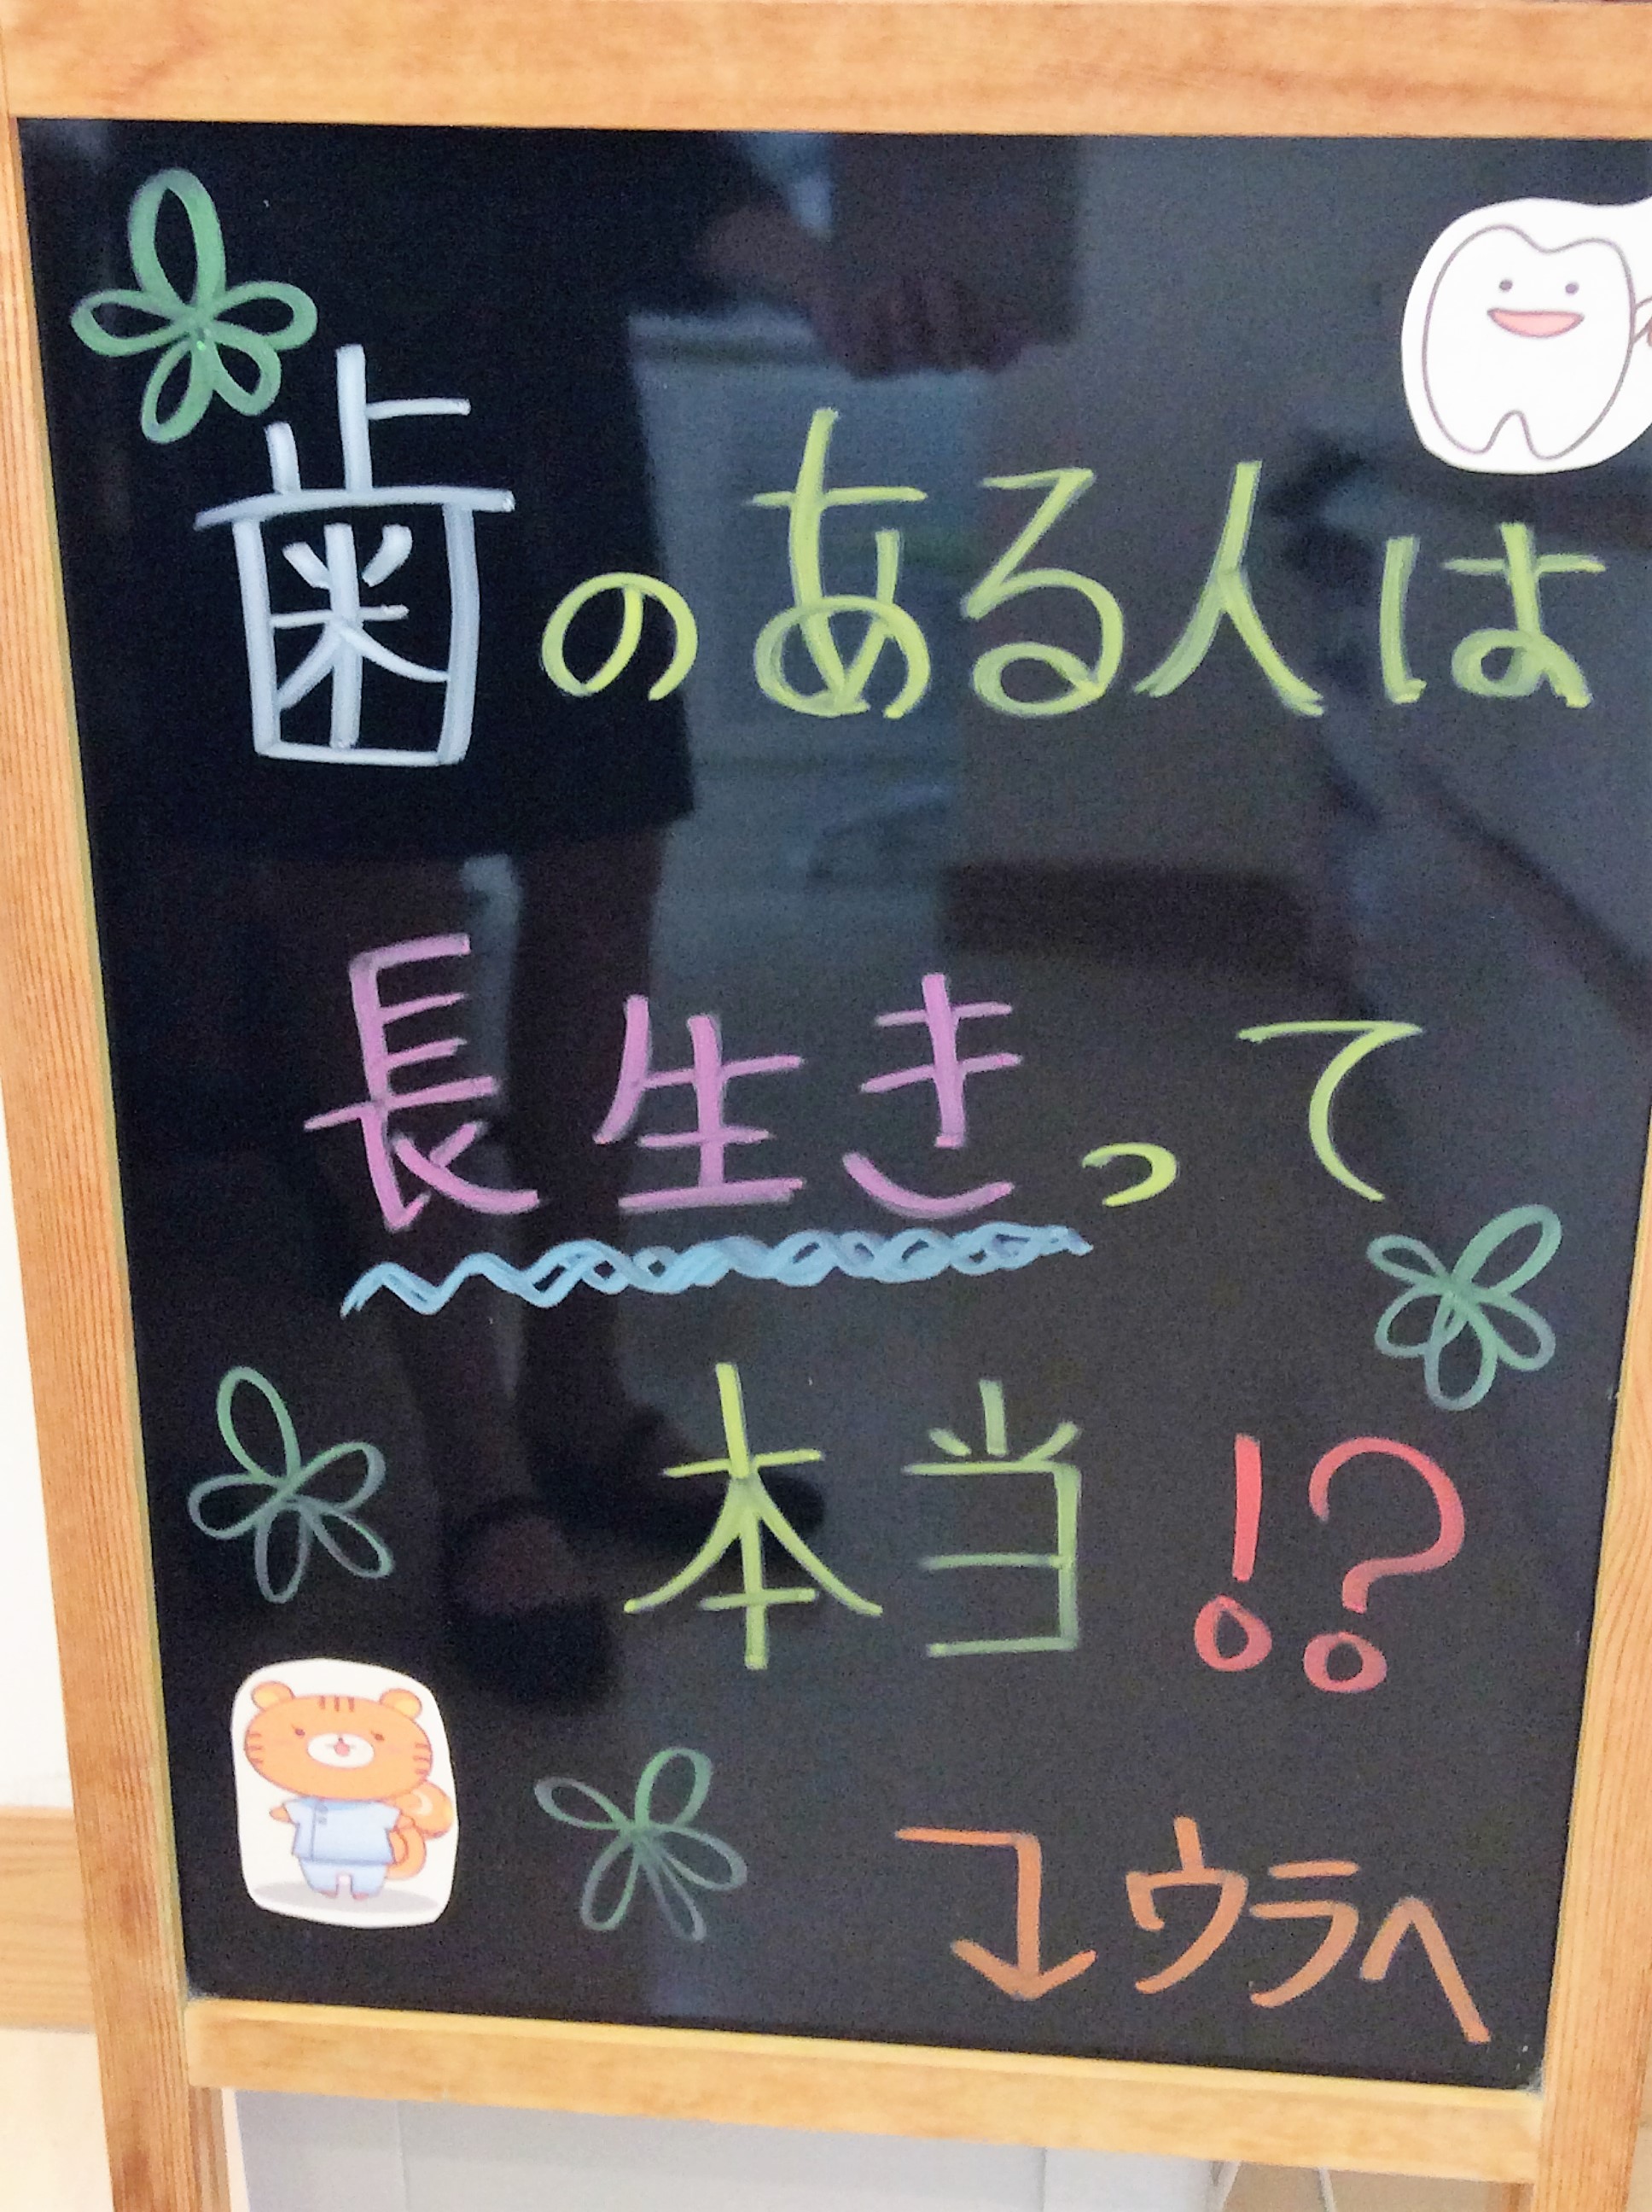 歯のある人は
長生きって
本当!?
↴ウラへ